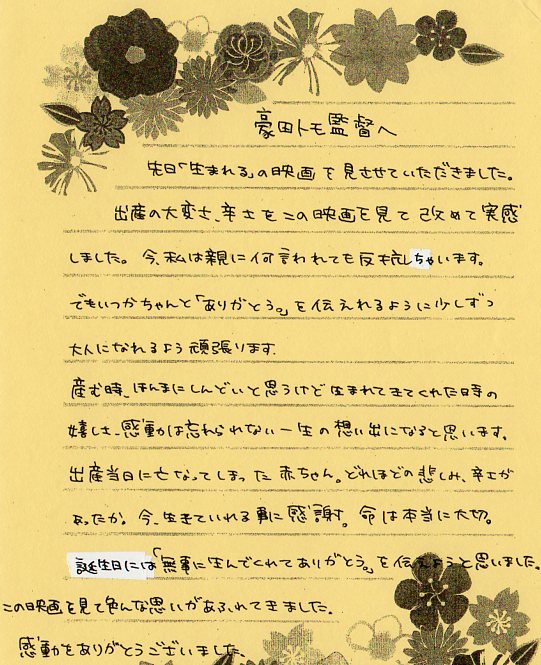 豪田トモ監督へ
先日「生まれる」の映画を見させていただきました。
出産の大変さ、辛さをこの映画を見て改めて実感
しました。今、私は親に何言われても反抗しちゃいます。
でもいつかちゃんと「ありがとう。」を伝えれるように少しずつ
大人になれるよう頑張ります。
産む時、ほんまにしんどいと思うけど生まれてきてくれた時の
嬉しさ、感動は忘れられない一生の想い出になると思います。
出産当日に亡なってしまった赤ちゃん。どれほどの悲しみ、辛さが
あったか。今、生きていれる事に感謝。命は本当に大切。
誕生日には「無事に生んでくれてありがとう。」を伝えようと思いました。
この映画を見て色んな思いがあふれてきました。
感動をありがとうございました。